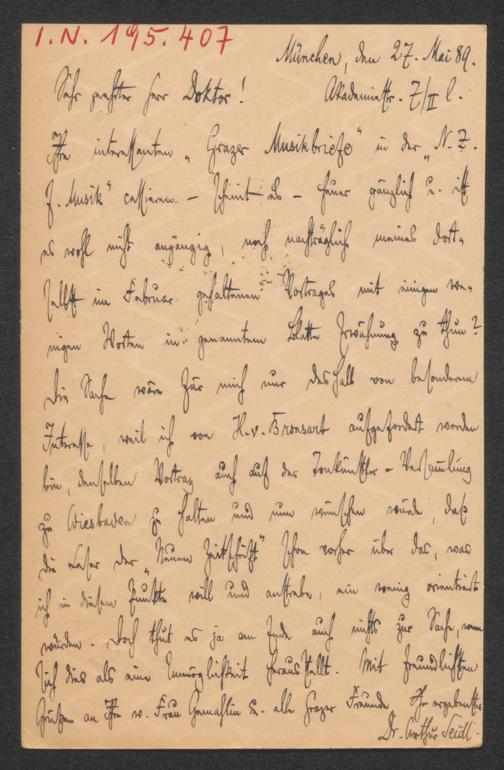 I.N. 195.407
München, den 27. Mai 89.
Akademiestr. 7/II l.
Sehr geehrter Herr Doktor!
Ihre interessanten „Grazer Musikbriefe" in der „N. Z.
f. Musik" cassieren – scheint es – heuer gänzlich u. ist
es wohl nicht angängig, noch nachträglich meines dort-
selbst im Februar gehaltenen Vortrages mit einigen we-
nigen Worten in genanntem Blatte Erwähnung zu thun?
Die Sache wäre für mich nur deshalb von besonderem
Interesse, weil ich von H. v. Bronsart aufgefordert worden
bin, denselben Vortrag auch auf der Tonkünstler-Versammlung
zu Wiesbaden zu halten und nun wünschen würde, daß
die Leser der „Neuen Zeitschrift" schon vorher über das, was
ich in diesem Punkte will und anstrebe, ein wenig orientiert
würden. Doch thut es ja am Ende auch nichts zur Sache, wenn
sich dies als eine Unmöglichkeit herausstellt. Mit freundlichsten
Grüßen an Ihre w. Frau Gemahlin u. alle Grazer Freunde Ihr ergebenster
Dr. Arthur Seidl.